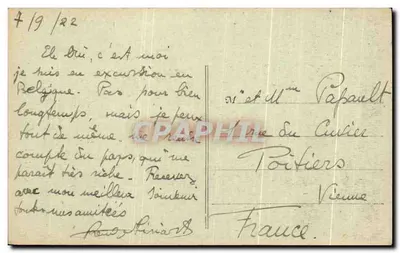 7/9/22
Eh oui, c'est moi
je suis en excursion en
Belgique. Pas pour bien
longtemps, mais je peux
tout de même me
compte du pays, qui me
paraît très riche. Recevez
avec mon meilleur souvenir
toutes nos amitiés
Mr et Mme Papault
du Cuvier
Poitiers
Vienne
France.
CARPHIL